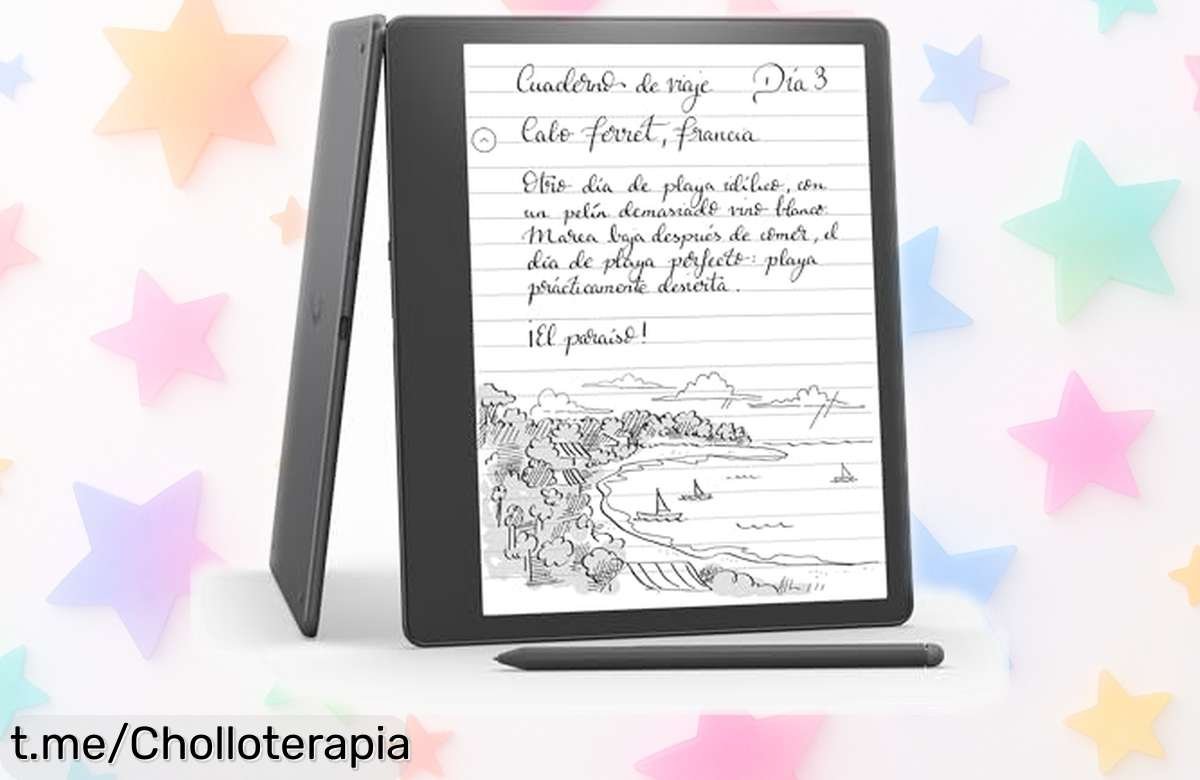 Cuaderno de viaje Día 3
Cabo ferret, francia
Otro día de playa idílico, con
un pelín demasiado vino blanco.
Marea baja después de comer, el
día de playa perfecto: playa
prácticamente desierta.
¡El paraíso!
t.me/Cholloterapia